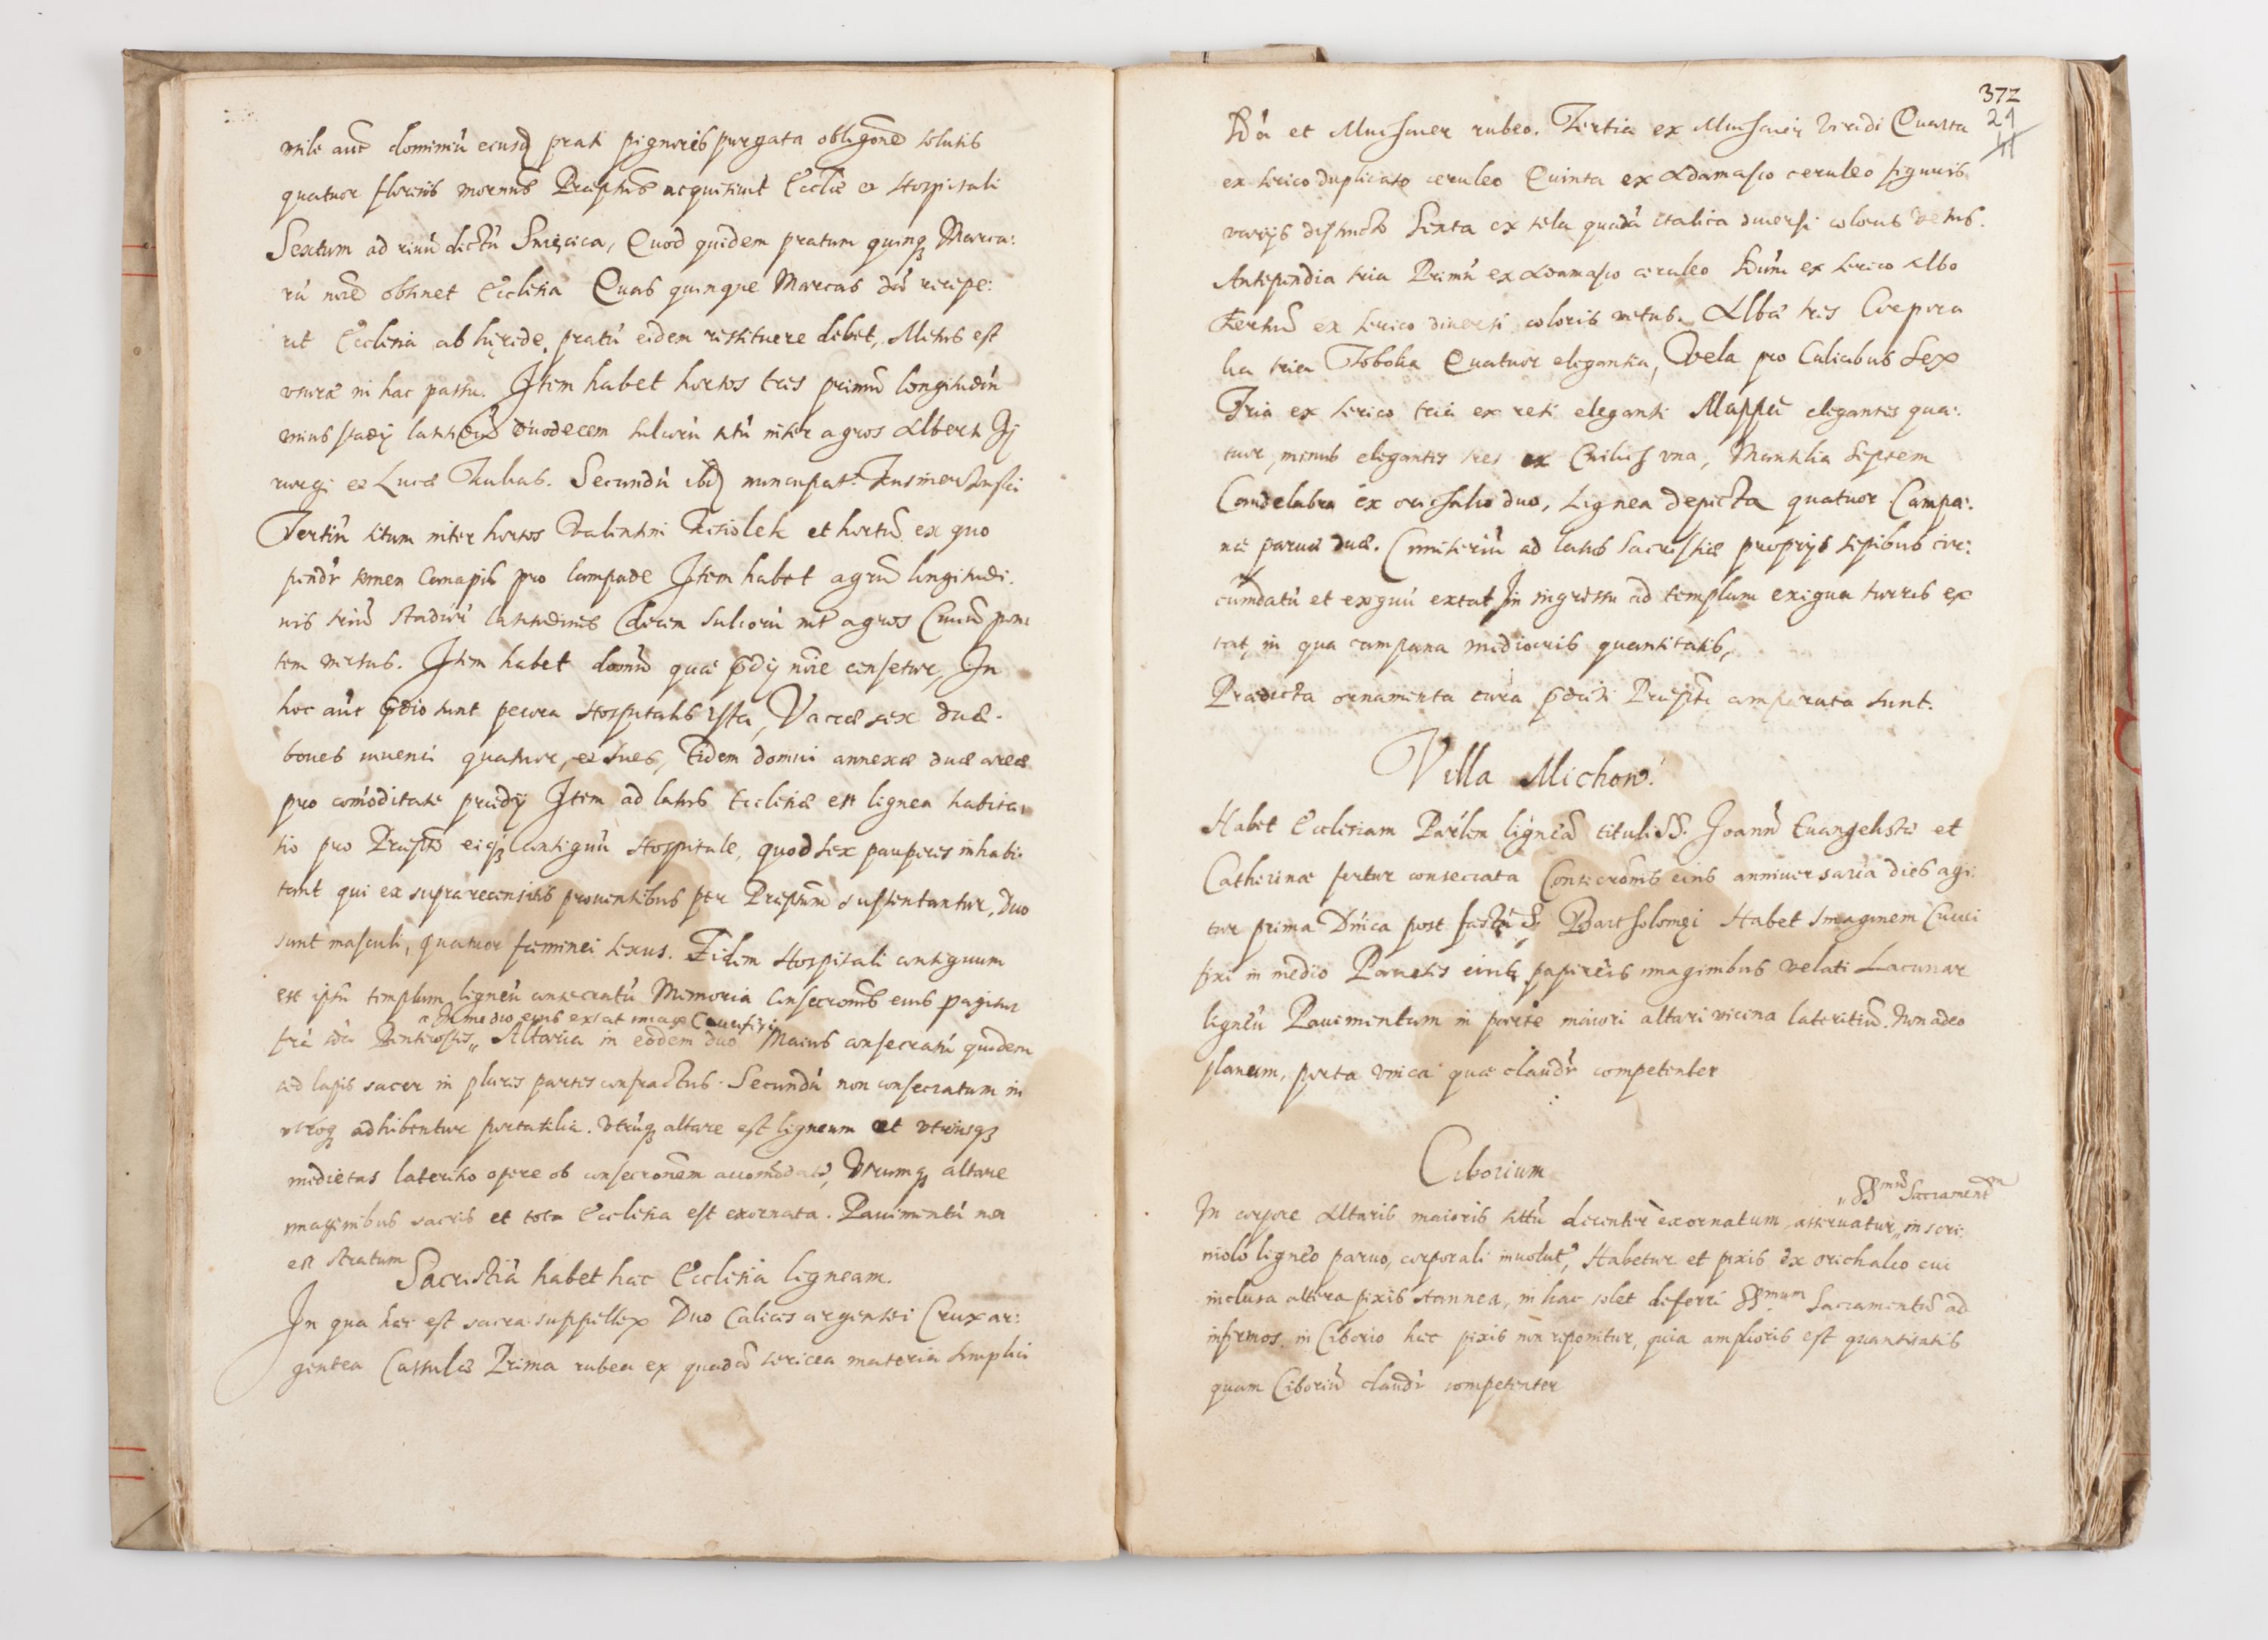 utile aut̃ dominiũ eiusq̃ prati pignoris purgata obligatione solutis
quatuor florenis modernus Præptus acquisiuit Ecclæ et Hospitali
Sextum ad riuũ dictũ Quod quidem pratum quinq Marca:
rũ nõe obtinet Ecclesia Quas quinque Marcas dũ recepe:
rit Ecclesia ab hęrede, pratũ eidem restituere debet, Metus est
usuræ in hac parte. Item habet hortos tres primũ longitudin̄
unius stadij latitudin̄ duodecem sulcorũ sitũ inter agros Alberti
et Lucæ Secundũ ibid nuncupat.
Tertiũ situm inter hortos Valentini et hortũ ex quo
pendr̃ semen Canapis pro lampade Item habet agrũ longitudi:
nis triũ stadiorũ latitudinis decem sulcorũ int̃ agros
tem Item habet domũ quæ p̃dij nõie censetur, In
hoc aut̃ p̃dio sunt pecora Hospitalis ista, Vaccæ sex duæ.
boues iuuenci quatuor, et sues, Eidem domui annexæ duæ areæ
pro com̃oditate prædij Item ad latus Ecclesiæ est lignea habita:
tio pro Præpto eiq̃ contiguũ Hospitale, quod sex pauperes inhabi:
tant qui ex supra recensitis prouentibus per Præptum sustentantur, Duo
sunt masculi, quatuor fæminei sexus. Eidem Hospitali contiguum
est ipsũ templum ligneũ consecratũ Memoria Consecrõnis eius pagitur
" In medio eius extat imago Crucifixi
fria 2da Pentecostes" Altaria in eodem duo Maius consecratũ quidem
sed lapis sacer in plures partes confractus. Secundũ non consecratum in
utroq̃ adhibentur portatilia. Vtrũq̃ altare est ligneum et vtriusq̃
medietas lateritio opere ob consecrõnem accom̃odatũ, Vtrumq̃ altare
imaginibus sacris et tota Ecclesia est exornata. Pauimentũ non
est stratum
Sacristiã habet hæc Ecclesia ligneam.
In qua hæc est sacra suppellex Duo Calices argentei Crux ar:
gentea Casulæ Prima rubea ex quadã sericea materia simplici
372
21
2da et Muchaier rubeo. Tertia ex Muchaier viridi Quarta
ex serico duplicato ceruleo Quinta ex Adamasco ceruleo figuris
varijs distincto Sexta ex tela quadã italica diuersi coloris vetus.
Antipendia tria Primũ ex Adamasco ceruleo 2dũm ex serico Albo
Tertiũ ex serico diuersi coloris vetus. Albæ tres Corpora
lia tria Tobolia Quatuor elegantia, Vela pro Calicibus Sex
Tria ex serico tria ex reti eleganti Mappæ elegantes qua:
tuor, minus elegantes tres ex una, Mantilia Septem
Candelabra ex orichalco duo, Lignea depicta quatuor Campa:
næ paruæ duæ. Cimiteriũ ad latus Sacristiæ proprijs sepibus cir:
cũmdatũ et exiguũ extat In ingressu ad templum exigua turris ex
tat, in qua campana mediocris quantitatis,
Prædicta ornamenta cura p̃dicti Præpti comparata sunt.
Villa Michow.
Habet Ecclesiam Parlem ligneã tituli SS. Joannis Euangelistæ et
Catherinæ fertur consecrata Consecrõnis eius anniuersaria dies agi:
tur prima Dñica post festũ S. Bartholomęi Habet Imaginem Cruci
fixi in medio Parietis eius papireis imaginibus velati Lacunar
ligneũ Pauimentum in parte maiori altari vicina lateritiũ. Non adeo
planum, porta vnica quæ claudr̃ competenter
Ciborium
"SSmũ Sacramentũ
In corpore Altaris maioris sitũ decenter exornatum, asseruatur" in scri:
niolo ligneo paruo, corporali inuolutũ, Habetur et pixis ex orichalco cui
inclusa altera pixis stannea, in hac solet deferri SSmum Sacramentũ ad
infirmos. in Ciborio hæc pixis non reponitur, quia amplioris est quantitatis
quam Ciboriũ claudr̃ competenter